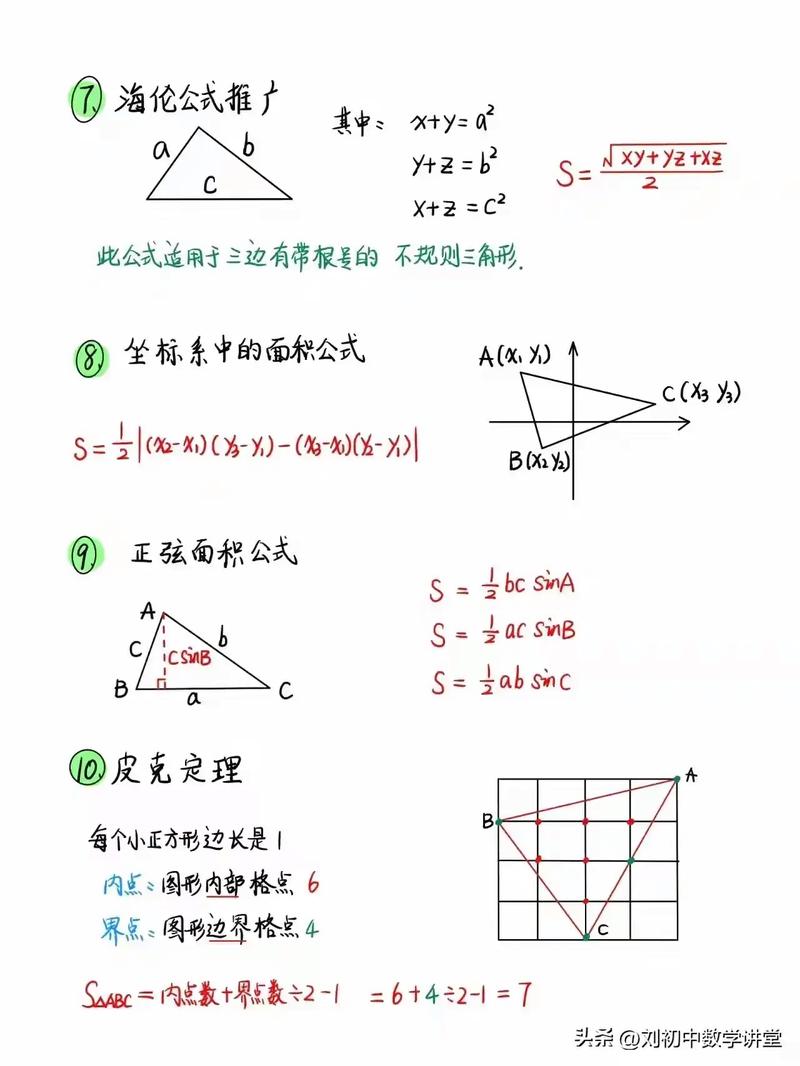 7. 海伦公式推广
a b c
其中: x+y=a²
y+z=b²
x+z=c²
S=√(xy+yz+xz)/2
此公式适用于三边有带根号的 不规则三角形.
8. 坐标系中的面积公式
A(x₁ y₁)
C(x₃ y₃)
B(x₂ y₂)
S=1/2|(x₂-x₁)(y₃-y₁)-(x₃-x₁)(y₂-y₁)|
9. 正弦面积公式
A
c b
csinB
B a C
S = 1/2 bc sinA
S = 1/2 ac sinB
S = 1/2 ab sinC
10. 皮克定理
A
B
C
每个小正方形边长是1
内点: 图形内部格点 6
界点: 图形边界格点 4
S△ABC = 内点数+界点数÷2-1 = 6+4÷2-1=7
头条 @刘初中数学讲堂